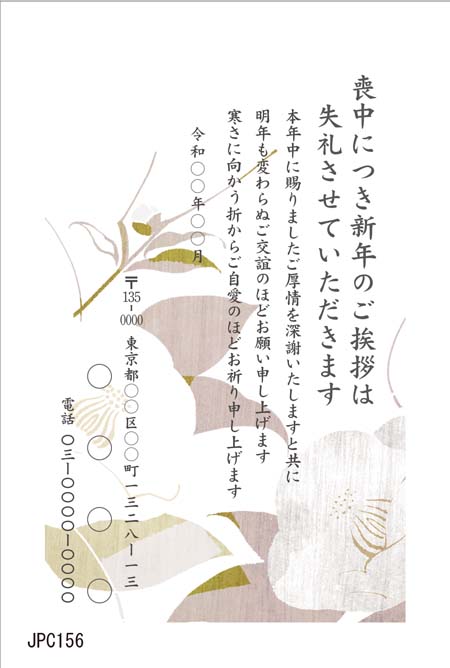 喪中につき新年のご挨拶は
失礼させていただきます
本年中に賜りましたご厚情を深謝いたしますと共に
明年も変わらぬご交誼のほどお願い申し上げます
寒さに向かう折からご自愛のほどお祈り申し上げます
令和〇〇年〇〇月
〒135-0000
東京都〇〇区〇〇町一三二八ー一三
〇〇〇〇
電話 〇三ー〇〇〇〇ー〇〇〇〇
JPC156